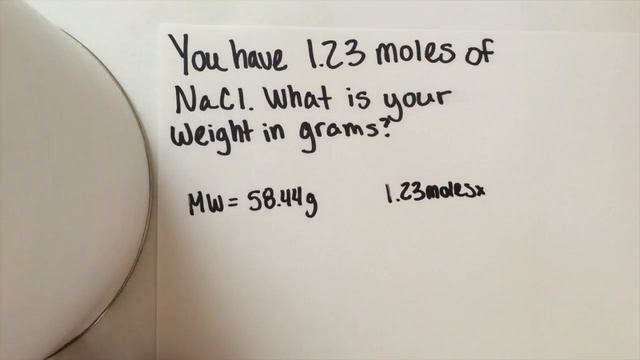 You have 1.23 moles of
NaCl. What is your
weight in grams?
MW = 58.44g 1.23molesx